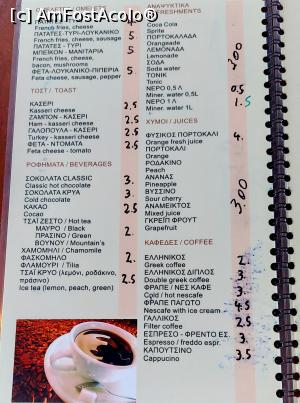 (c) AmFostAcolo®
French fries, cheese
ΠΑΤΑΤΕΣ-ΤΥΡΙ-ΛΟΥΚΑΝΙΚΟ 5
French fries, cheese, sausage
ΠΑΤΑΤΕΣ - ΤΥΡΙ
ΜΠΕΪΚΟΝ - ΜΑΝΙΤΑΡΙΑ 5
French fries, cheese,
bacon, mushrooms
ΦΕΤΑ-ΛΟΥΚΑΝΙΚΟ-ΠΙΠΕΡΙΑ 5.
Feta cheese, sausage, pepper
ΤΟΣΤ / TOAST
ΚΑΣΕΡΙ 2,5
Kasseri cheese
ΖΑΜΠΟΝ - ΚΑΣΕΡΙ 2,5
Ham - kasseri cheese
ΓΑΛΟΠΟΥΛΑ - ΚΑΣΕΡΙ 2,5
Turkey - kasseri cheese
ΦΕΤΑ - ΝΤΟΜΑΤΑ 2,5
Feta cheese - tomato
ΡΟΦΗΜΑΤΑ / BEVERAGES
ΣΟΚΟΛΑΤΑ CLASSIC 3.
Classic hot chocolate
ΣΟΚΟΛΑΤΑ ΚΡΥΑ 3.
Cold chocolate
ΚΑΚΑΟ 2,5
Cocoa
ΤΣΑΪ ΖΕΣΤΟ / Hot tea
ΜΑΥΡΟ / Black
ΠΡΑΣΙΝΟ / Green 2.
ΒΟΥΝΟΥ / Mountain's
ΧΑΜΟΜΗΛΙ / Chamomile
ΦΑΣΚΟΜΗΛΟ 2.
ΦΛΑΜΟΥΡΙ / Tilia
ΤΣΑΪ ΚΡΥΟ (λεμόνι, ροδάκινο,
πράσινο) 2,5
Ice tea (lemon, peach, green)
ΑΝΑΨΥΚΤΙΚΑ
REFRESHMENTS
Coca Cola
Sprite
ΠΟΡΤΟΚΑΛΑΔΑ
Orangeade
ΛΕΜΟΝΑΔΑ
Lemonade
ΣΟΔΑ
Soda water
ΤΟΝΙΚ
Tonic
ΝΕΡΟ 0,5 Λ 0,5
Miner. water 0,5L
ΝΕΡΟ 1 Λ 1.5
Miner. water 1L
ΧΥΜΟΙ / JUICES
ΦΥΣΙΚΟΣ ΠΟΡΤΟΚΑΛΙ 4.
Orange fresh juice
ΠΟΡΤΟΚΑΛΙ
Orange
ΡΟΔΑΚΙΝΟ
Peach
ΑΝΑΝΑΣ
Pineapple
ΒΥΣΣΙΝΟ
Sour cherry
ΑΝΑΜΕΙΚΤΟΣ 3,00
Mixed juice
ΓΚΡΕΪΠ ΦΡΟΥΤ
Grapefruit
ΚΑΦΕΔΕΣ / COFFEE
ΕΛΛΗΝΙΚΟΣ 2.
Greek coffee
ΕΛΛΗΝΙΚΟΣ ΔΙΠΛΟΣ 3.
Double greek coffee
ΦΡΑΠΕ / ΝΕΣ ΚΑΦΕ 3.
Cold / hot nescafe
ΦΡΑΠΕ ΠΑΓΩΤΟ 4,5
Nescafe with ice cream
ΓΑΛΛΙΚΟΣ 2,5
Filter coffee
ΕΣΠΡΕΣΟ - ΦΡΕΝΤΟ ΕΣ. 3.
Espresso / freddo espr.
ΚΑΠΟΥΤΣΙΝΟ 3.5
Cappucino